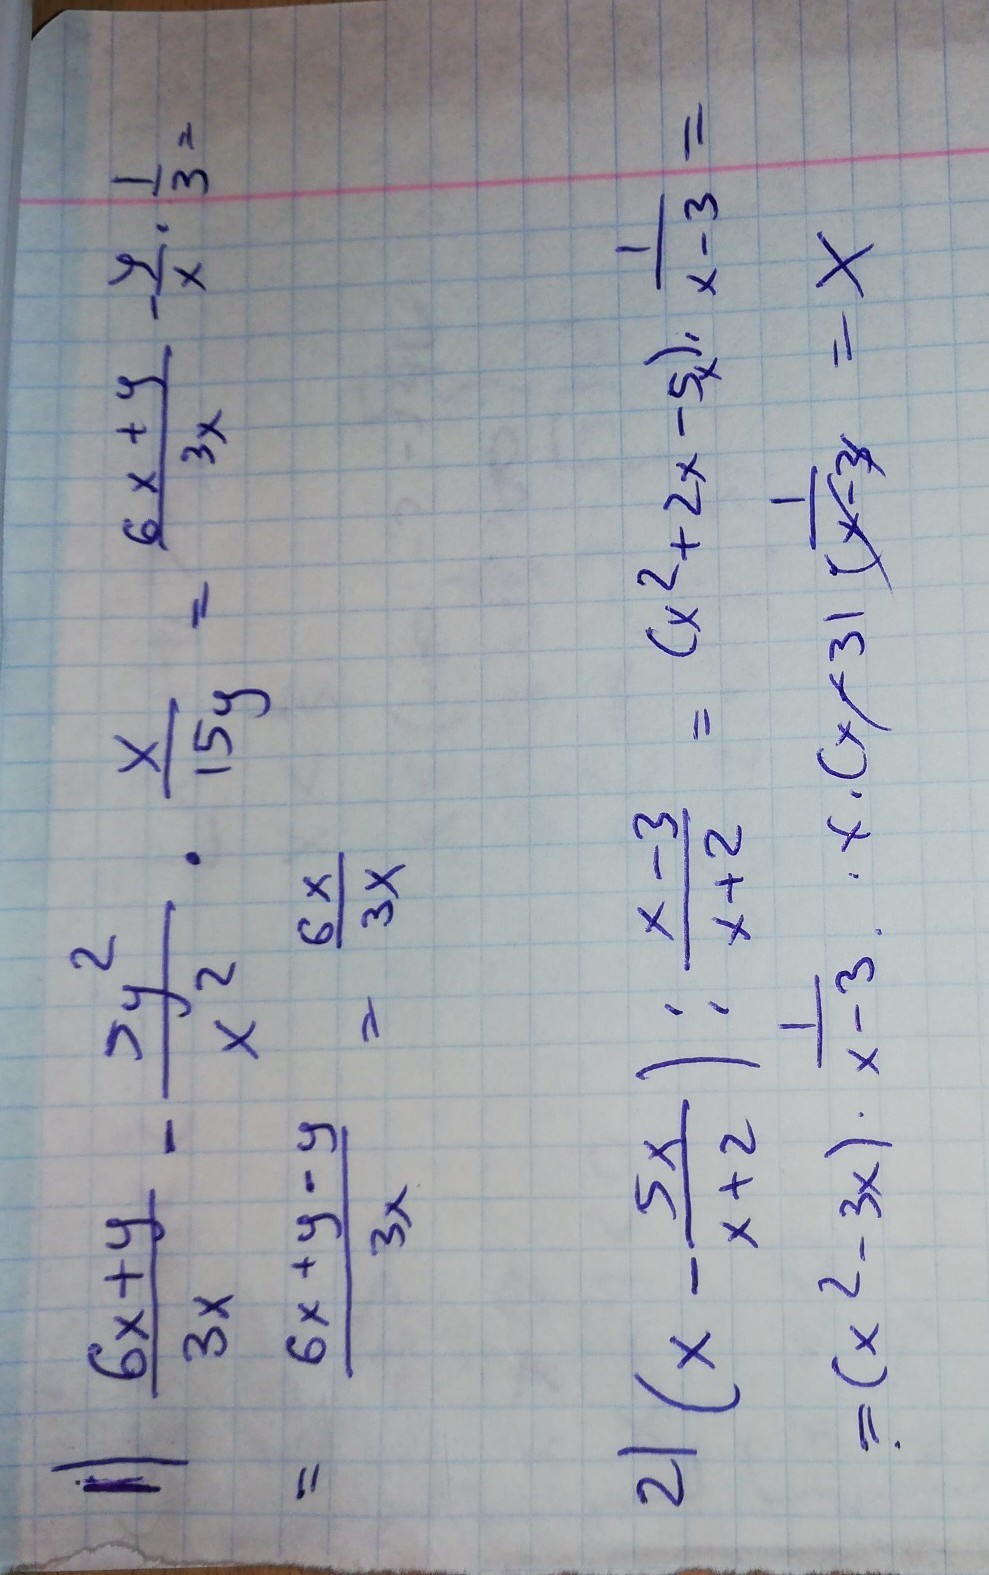 1) (6x+y)/(3x) - (5y²)/(x²) · x/(15y) = (6x+y)/(3x) - y/x · 1/3 =
= (6x+y-y)/(3x) = 6x/3x
2) (x - 5x/(x+2)) : (x-3)/(x+2) = (x²+2x-5x) · 1/(x-3) =
= (x²-3x) · 1/(x-3) · x · (x-3) 1/(x-3) = x